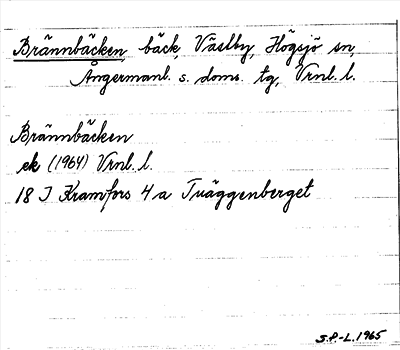 Brännbäcken, bäck, Väslby, Högsjö sn,
Ångermanl. s. doms. tg, Vrnl. l.
Brännbäcken
ek (1964) Vrnl. l.
18 I Kramfors 4 a Tväggenberget
S.P.-L. 1965